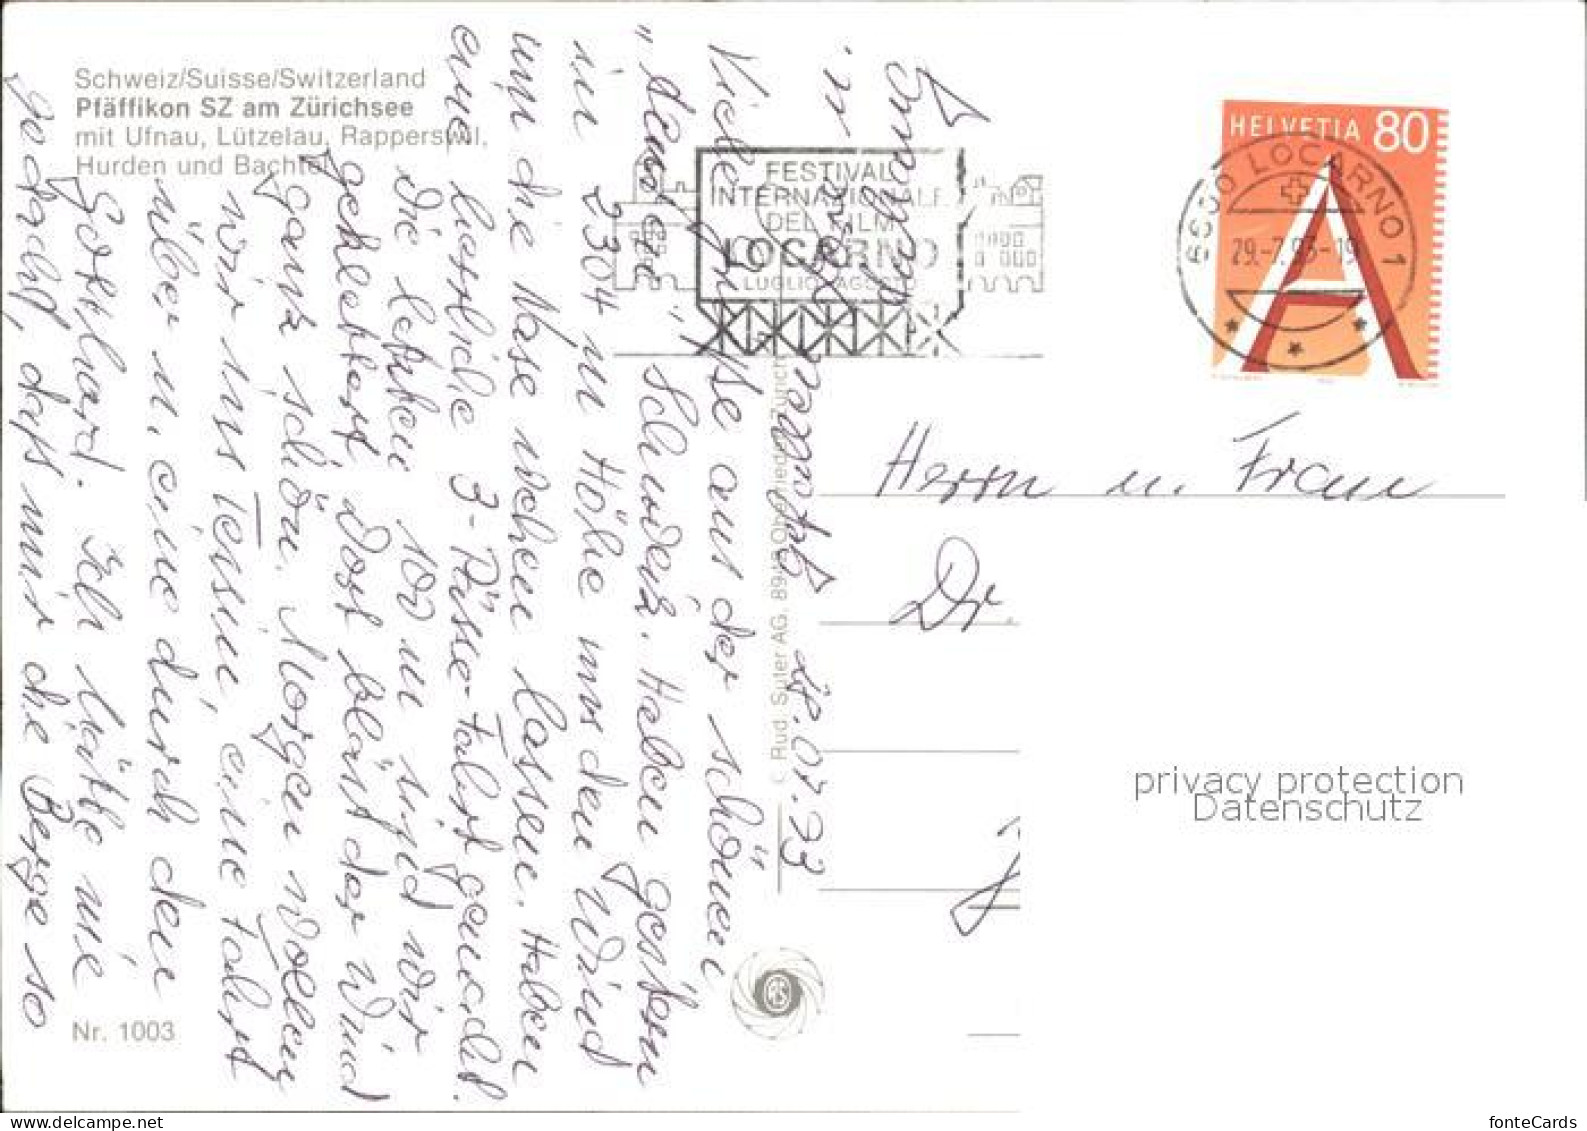 Schweiz/Suisse/Switzerland
Pfäffikon SZ am Zürichsee
mit Ufnau, Lützelau, Rapperswil,
Hurden und Bachtel
Nr. 1003
Rud. Suter AG, 8942 Oberrieden-Zürich
FESTIVAL
INTERNAZIONALE
DEL FILM
LOCARNO
LUGLIO-AGOSTO
HELVETIA 80
A
6600 LOCARNO 1
29.-7.93-19
Herrn u. Frau
Dr.
privacy protection
Datenschutz
28.07.93
Viele Grüße aus der schönen
Schweiz. Haben gestern
in 2304 m Höhe uns den Wind
um die Nase wehen lassen. Haben
eine herrliche 3-Pässe-Fahrt gemacht.
Die letzten 100 m sind wir
geklettert, dort bläst der Wind
ganz schön. Morgen wollen
wir ins Tessin, eine Fahrt
über u. eine durch den
Gotthard. Ich hätte nie
gedacht, daß mir die Berge so
www.delcampe.net
fonteCards